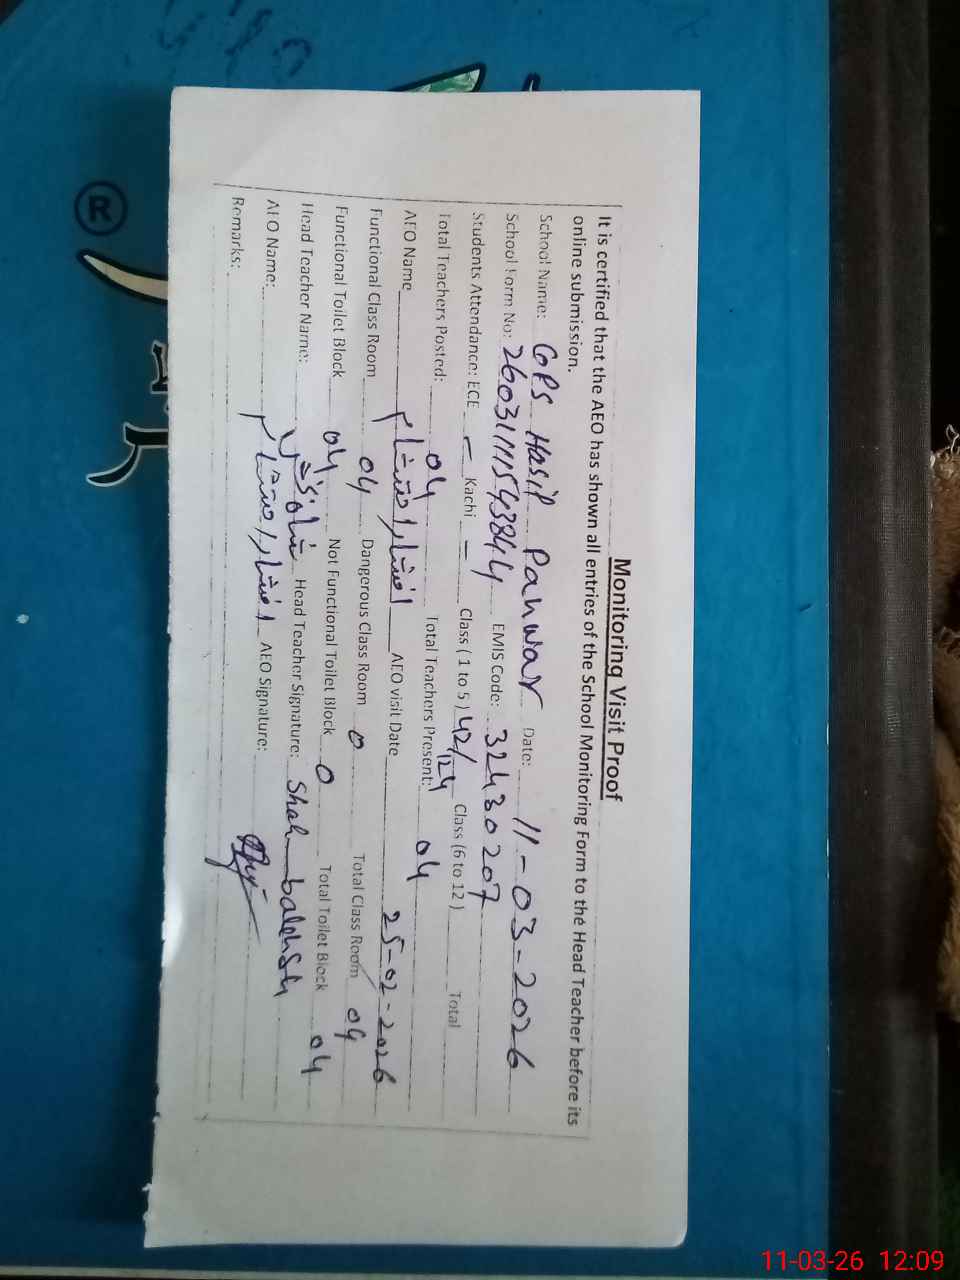 Monitoring Visit Proof
It is certified that the AEO has shown all entries of the School Monitoring Form to the Head Teacher before its
online submission.
School Name: GPS Hasil Panwar Date: 11-03-2026
School Form No: EMIS Code: 32430207
Students Attendance: ECE - Kachi - Class ( 1 to 5 ) 42/124 Class (6 to 12 ) Total
Total Teachers Posted: 04 Total Teachers Present: 04
AEO Name AEO visit Date 25-02-2026
Functional Class Room 04 Dangerous Class Room 0 Total Class Room 04
Functional Toilet Block 04 Not Functional Toilet Block 0 Total Toilet Block 04
Head Teacher Name: Head Teacher Signature: Shah
AEO Name: AEO Signature:
Remarks:
®
11-03-26 12:09